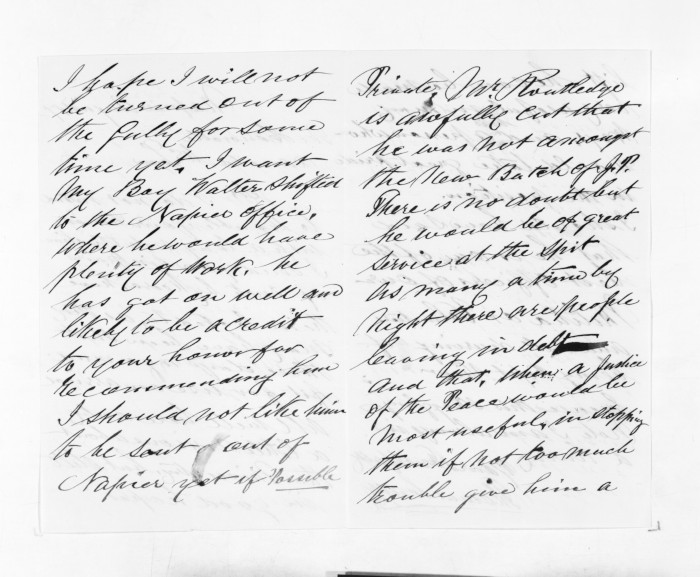 I hope I will not
be turned out of
the Gully for some
time yet. I want
My Boy Walter Shifted
to the Napier office,
where he would have
plenty of work. he
has got on well and
likely to be a credit
to your honor for
recommending him
I should not like him
to be sent out of
Napier yet if Possible
Private, Mr. Routledge
is awfully cut that
he was not amongst
the New Batch of J.P.
There is no doubt but
he would be of great
service at the Spit
As many a time by
Night there are people
leaving in debt
and that, when a Justice
of the Peace would be
most useful, in stopping
them if not too much
trouble give him a